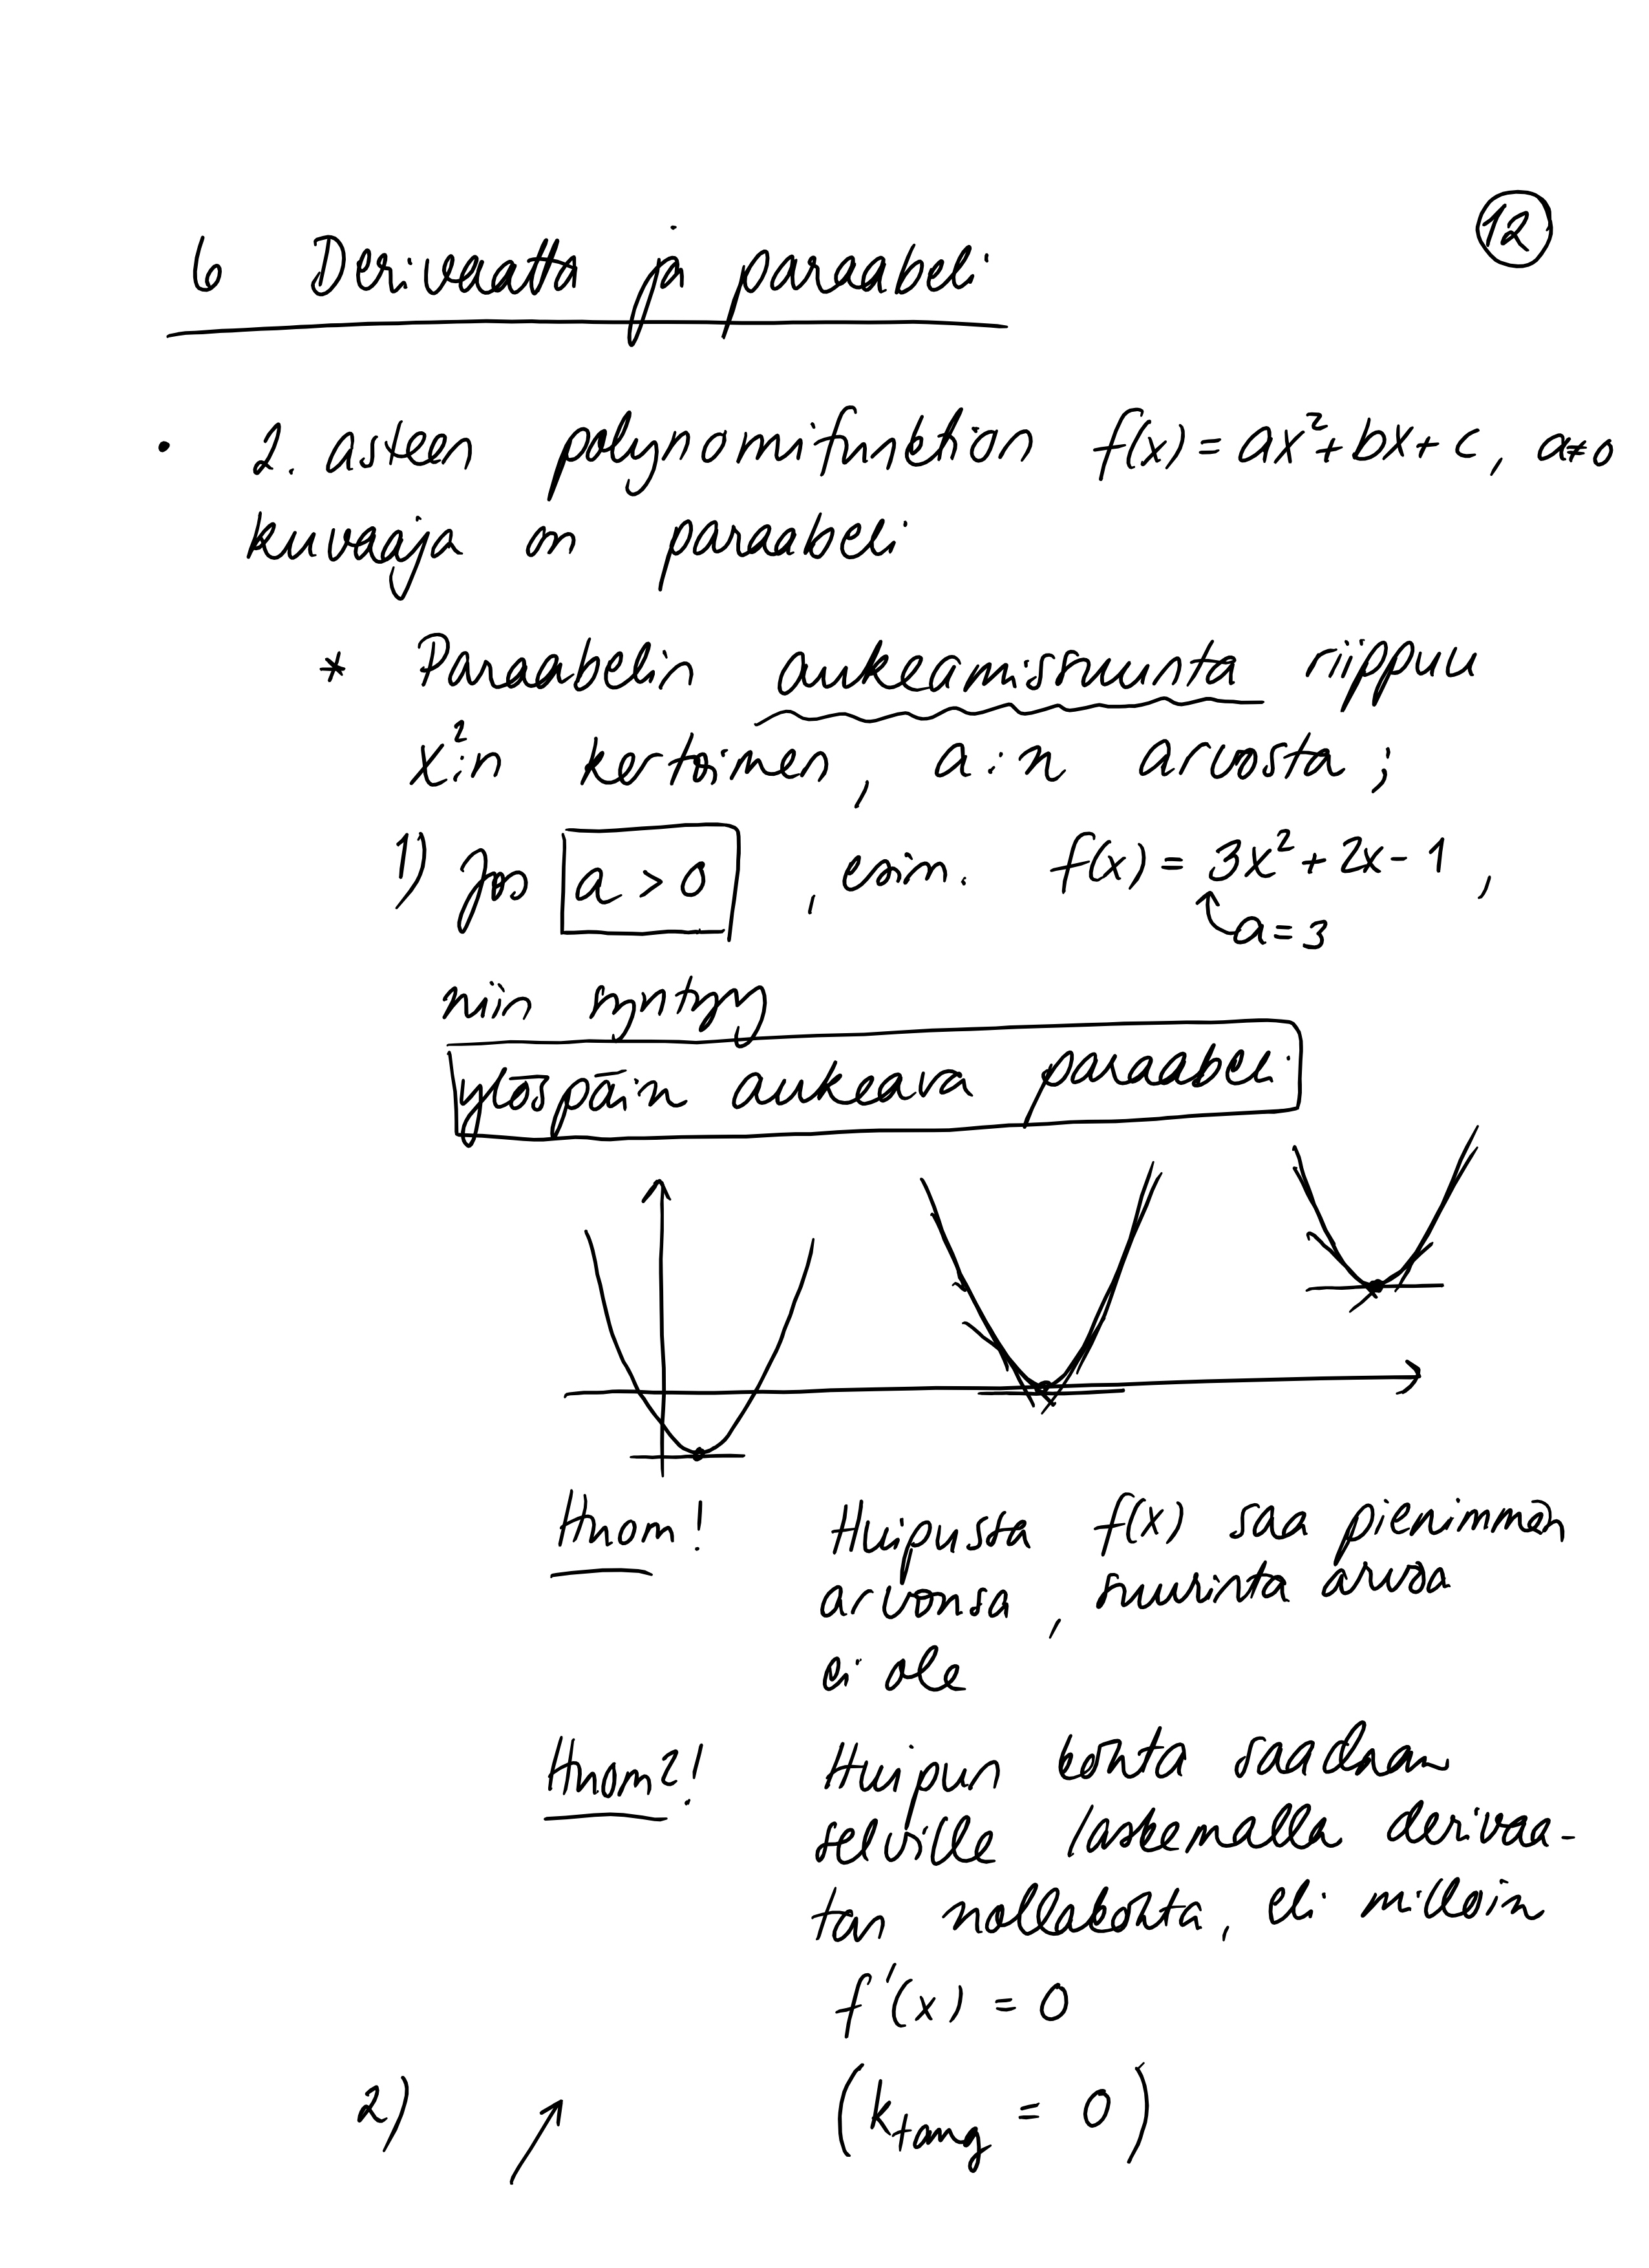 12
6 Derivaatta ja paraabeli
• 2. asteen polynomifunktion f(x) = ax² + bx + c, a≠0
kuvaaja on paraabeli
* Paraabelin aukeamissuunta riippuu
x²:n kertoimen, a:n arvosta;
1) Jos a > 0, esim. f(x) = 3x² + 2x - 1,
a = 3
niin syntyy
ylöspäin aukeava paraabeli
Huom! Huipusta f(x) saa pienimmän
arvonsa, suurinta arvoa
ei ole
Huom2! Huipun kohta saadaan
selville laskemalla derivaa-
tan nollakohta, eli milloin
f'(x) = 0
2) (k_tang = 0)